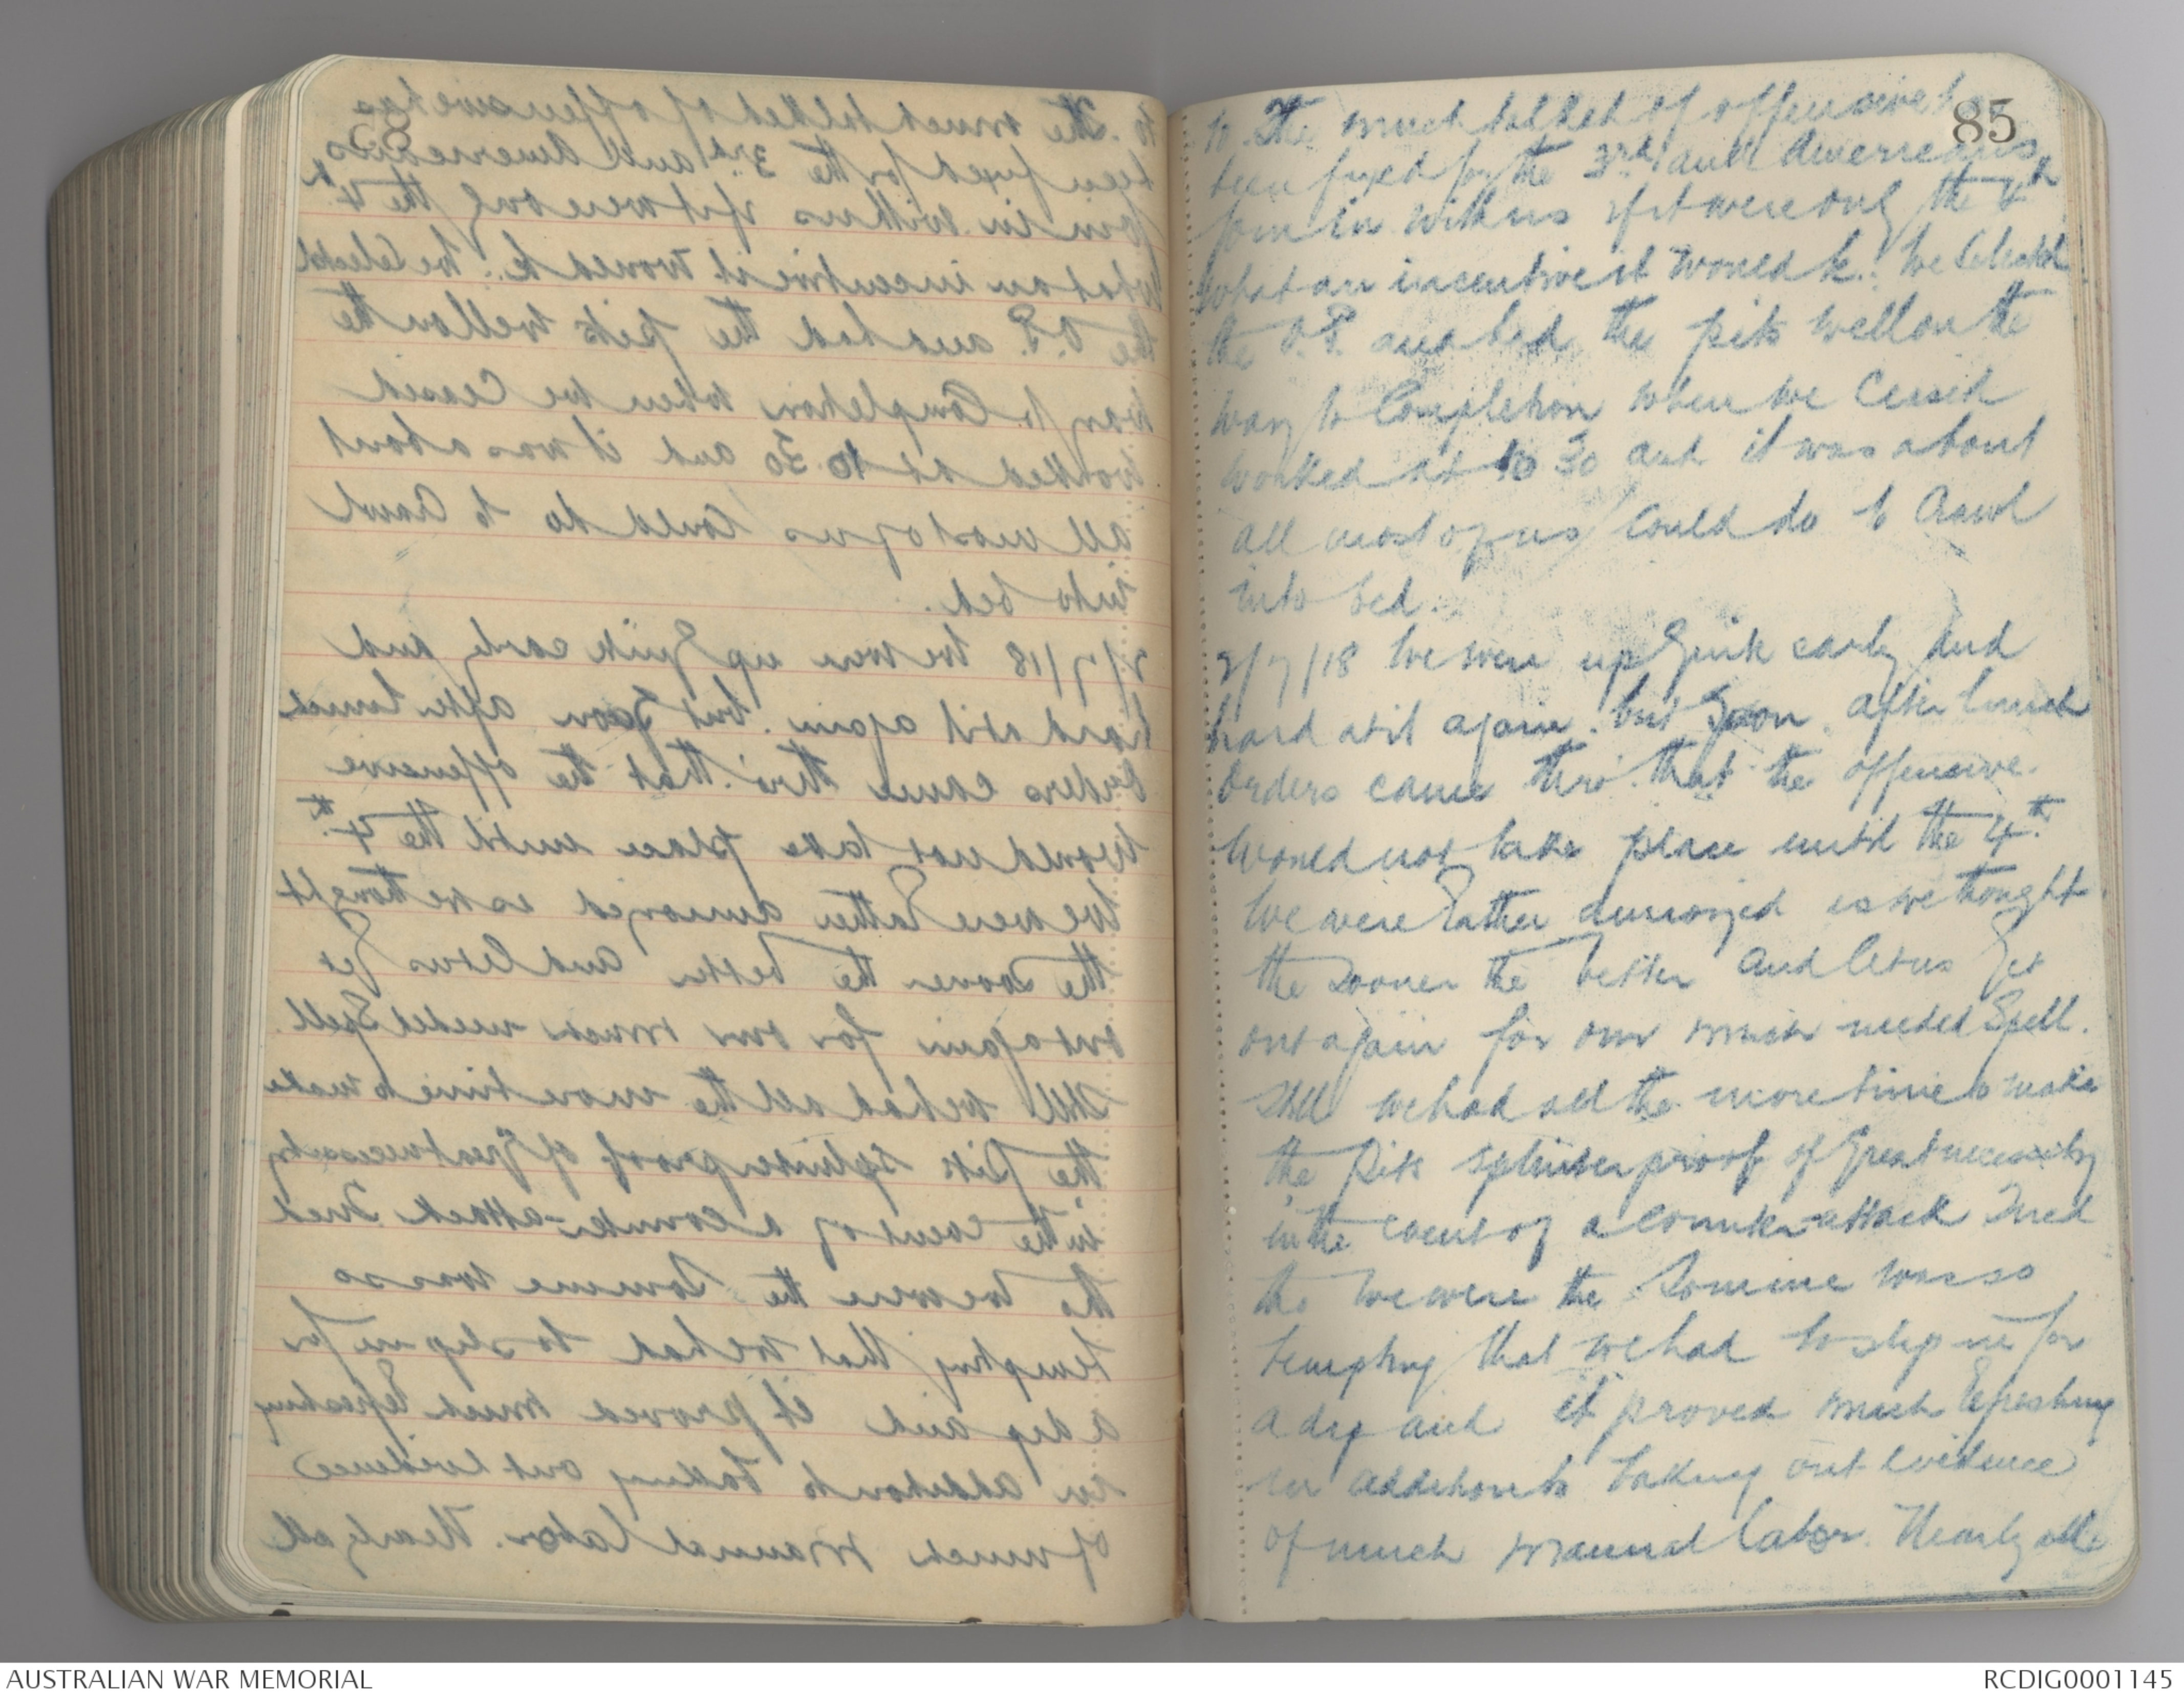 85
to. The much talked of offensive has
been fixed for the 3rd and Americans
join in with us if it were only the 4th
what an incentive it would be. We selected
the O.P. and had the pits well on the
way to Completion when we Ceased
worked at 10 30 and it was about
all most of us could do to Crawl
into bed.
2/7/18 We were up Quite early and
hard at it again. but soon after lunch
Orders came thro' that the offensive
would not take place until the 4th.
We were Rather annoyed as we thought
the sooner the better and let us Get
out again for our much needed Spell.
Still we had all the more time to make
the Pits splinter proof of Great necessity
in the event of a counter-attack Tired
tho we were the Somme was so
tempting that we had to slip in for
a dip and it proved much Refreshing
in addition to taking out evidence
of much manual labor. Nearly all
AUSTRALIAN WAR MEMORIAL
RCDIG0001145